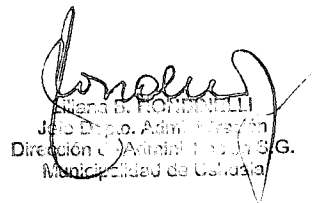 Liliana B.
Jefe Depto. Administración
Dirección de Administración S.G.
Municipalidad de Ushuaia